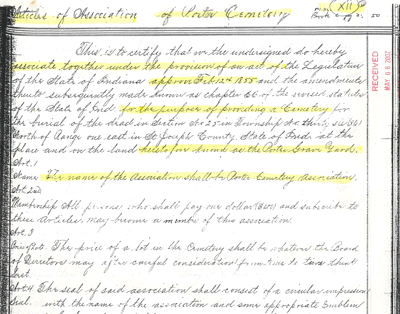 Articles of Association of Porter Cemetery
XII
This is to certify that we the undersigned do hereby
associate together under the provision of an act of the Legislature
of the State of Indiana approv Feb 12th 1855 and the amendments
thereto subsequently made known as chapter of the revised statutes
of the State of Ind. for the purpose of providing a Cemetery for
the burial of the dead in Section No 25 in Township No thirty
North of Range one east in St Joseph County State of Ind at the
place and on the land heretofore known as the Porter Grave Yard.
Art. 1
Name The name of the Association shall be Porter Cemetery Association.
Art 2nd
Membership All persons who shall pay one dollar and subscribe to
these Articles may become a member of this association.
Art 3
The price of a lot in the Cemetery shall be whatever the Board
of Directors may after careful consideration from time to time
Art 4 The seal of said association shall consist of a circular impression
with the name of the association and some appropriate Emblem
RECEIVED
MAY 06 2002